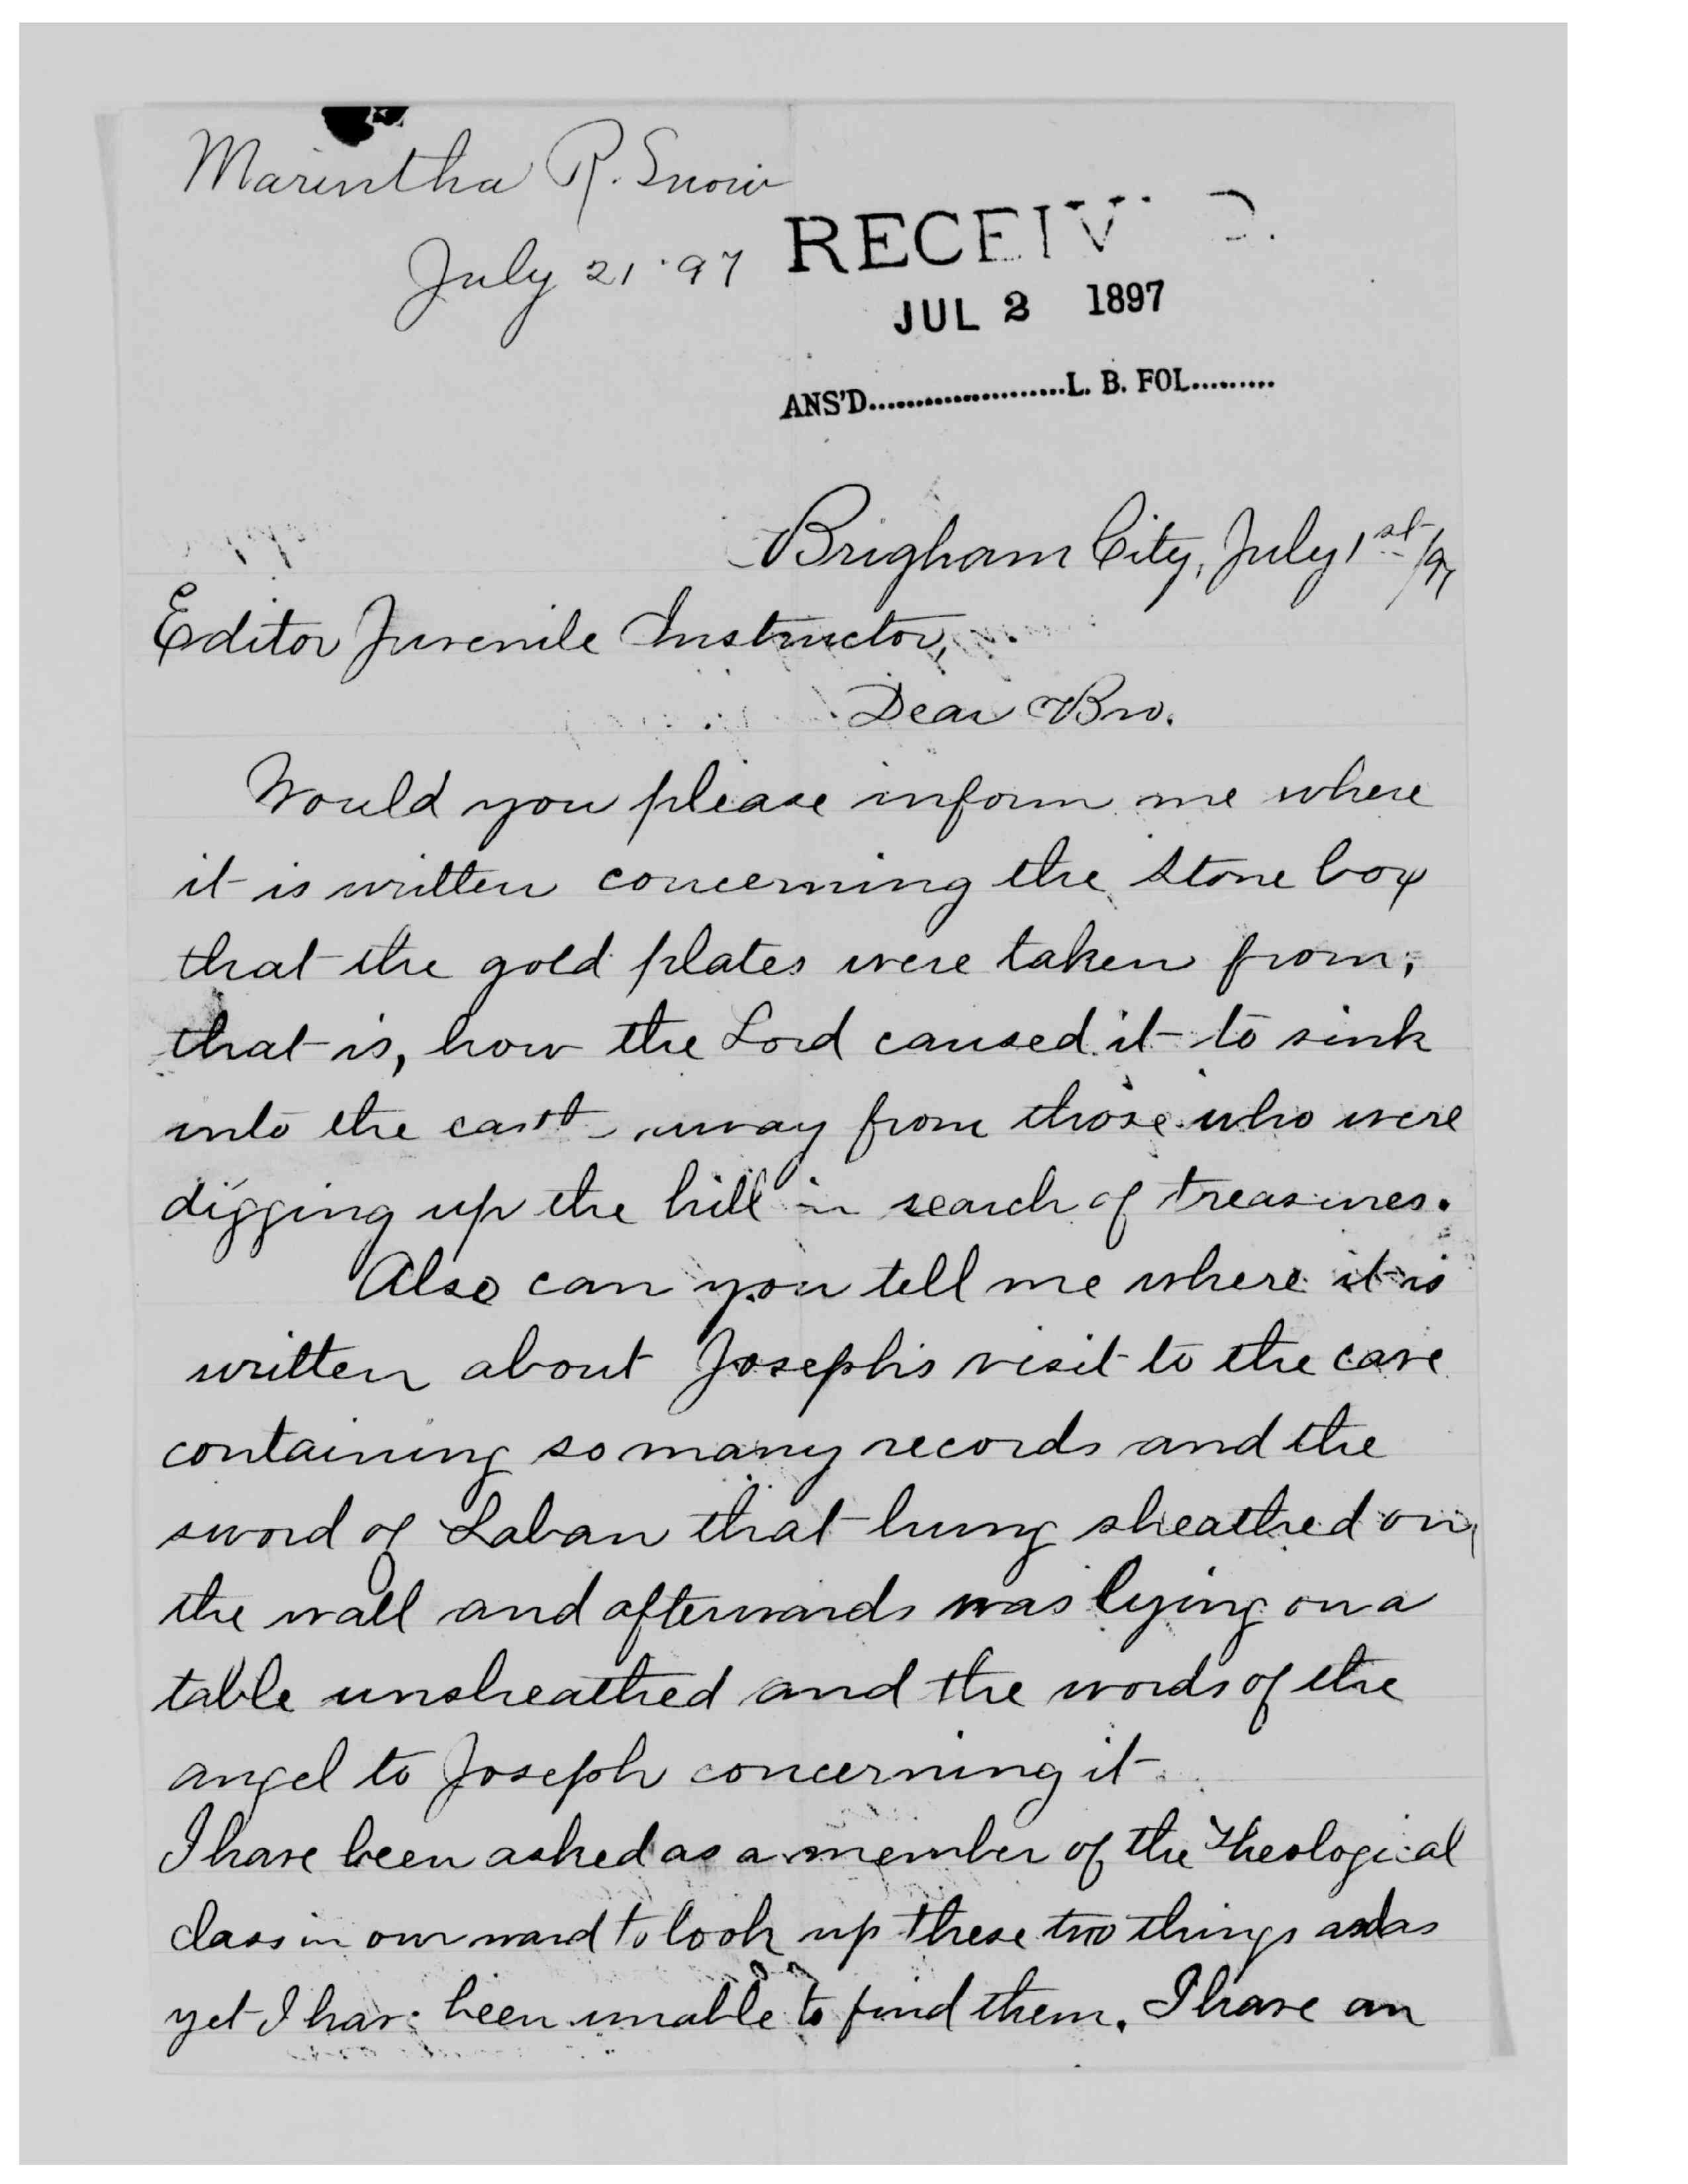 Marintha R. Snow
July 21 '97
RECEIV D.
JUL 2 1897
ANS'D.....................L. B. FOL.........
Brigham City, July 1st /97
Editor Juvenile Instructor,
Dear Bro.
Would you please inform me where
it is written concerning the stone box
that the gold plates were taken from;
that is, how the Lord caused it to sink
into the earth away from those who were
digging up the hill in search of treasures.
Also can you tell me where it is
written about Joseph's visit to the cave
containing so many records and the
sword of Laban that hung sheathed on
the wall and afterwards was lying on a
table unsheathed and the words of the
angel to Joseph concerning it.
I have been asked as a member of the Theological
class in our ward to look up these two things and as
yet I have been unable to find them. I have an